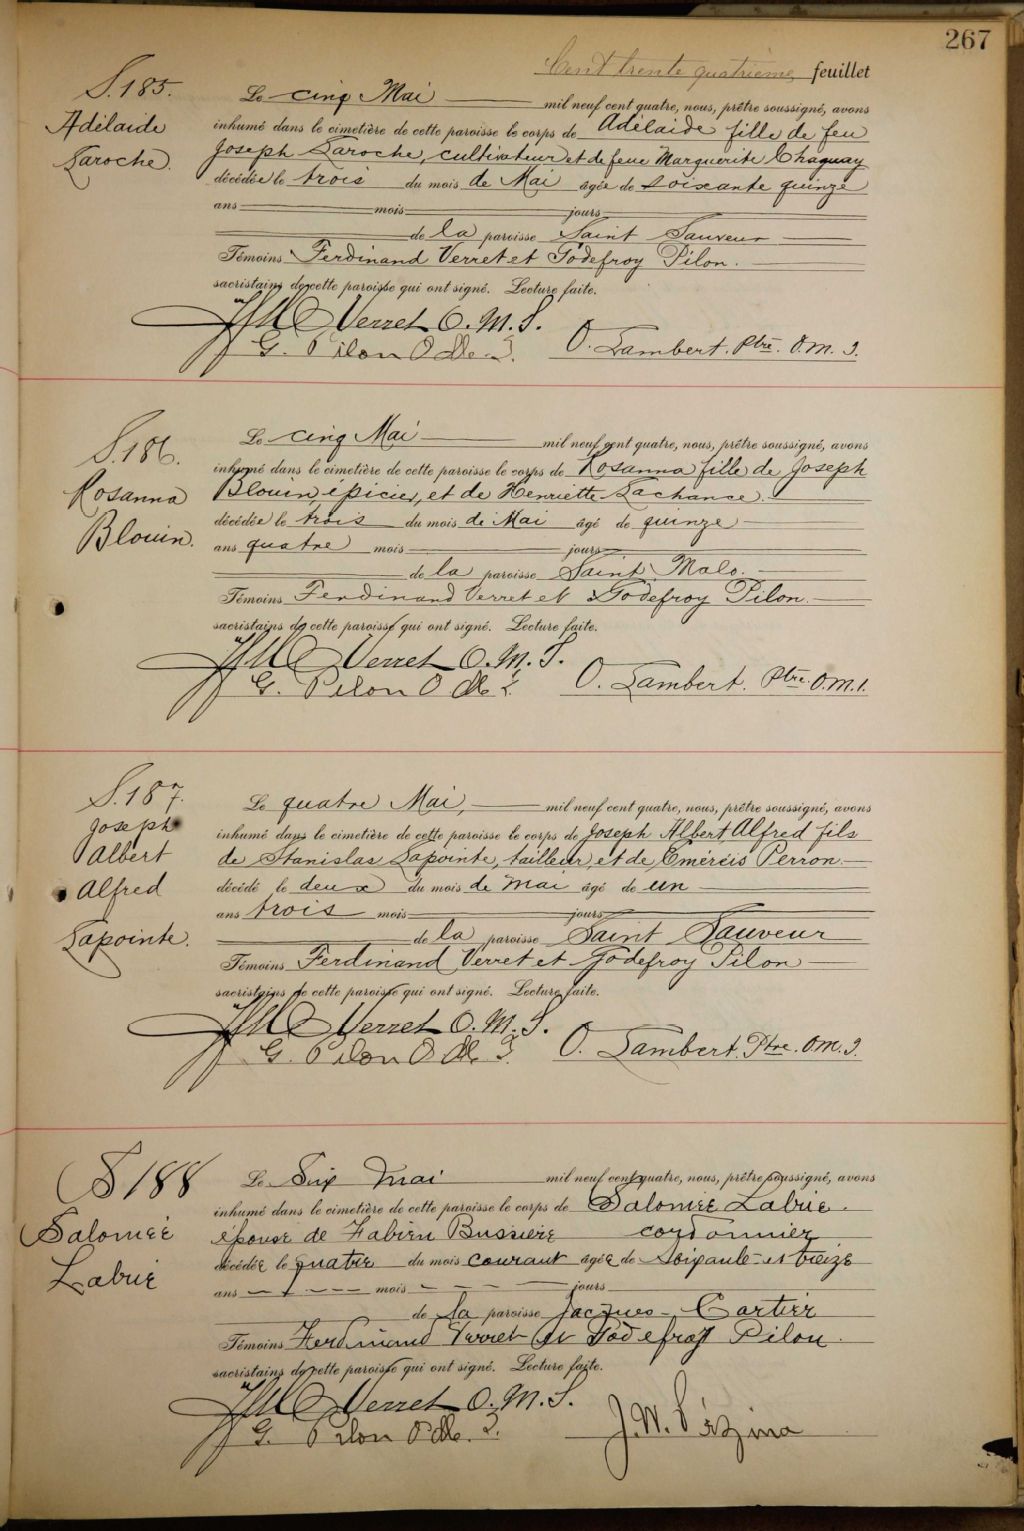 267
Cent trente quatrième feuillet
S.185.
Adélaide
Laroche.
Le cinq Mai mil neuf cent quatre, nous, prêtre soussigné, avons
inhumé dans le cimetière de cette paroisse le corps de Adélaide fille de feu
Joseph Laroche, cultivateur et de feue Marguerite Chaquay
décédée le trois du mois de Mai âgée de soixante quinze
ans mois jours
de la paroisse Saint Sauveur
Témoins Ferdinand Verret et Godefroy Pilon.
sacristains de cette paroisse qui ont signé. Lecture faite.
Verret O.M.I.
G. Pilon O. Lambert. Ptre. O.M.I.
S.186.
Rosanna
Blouin.
Le cinq Mai mil neuf cent quatre, nous, prêtre soussigné, avons
inhumé dans le cimetière de cette paroisse le corps de Rosanna fille de Joseph
Blouin, épicier, et de Henriette Lachance.
décédée le trois du mois de Mai âgé de quinze
ans quatre mois jours
de la paroisse Saint Malo.
Témoins Ferdinand Verret et Godefroy Pilon.
sacristains de cette paroisse qui ont signé. Lecture faite.
Verret O.M.I.
G. Pilon O. Lambert. Ptre. O.M.I.
S.187.
Joseph
Albert
Alfred
Lapointe.
Le quatre Mai, mil neuf cent quatre, nous, prêtre soussigné, avons
inhumé dans le cimetière de cette paroisse le corps de Joseph Albert Alfred fils
de Stanislas Lapointe, tailleur, et de Eméréis Perron.
décédé le deux du mois de mai âgé de un
ans trois mois jours
de la paroisse Saint Sauveur
Témoins Ferdinand Verret et Godefroy Pilon
sacristains de cette paroisse qui ont signé. Lecture faite.
Verret O.M.I.
G. Pilon O. Lambert. Ptre. O.M.I.
S 188
Salomée
Labrie
Le Six mai mil neuf cent quatre, nous, prêtre soussigné, avons
inhumé dans le cimetière de cette paroisse le corps de Salomée Labrie.
épouse de Fabien Bussiere cordonnier
décédée le quatre du mois courant âgée de Soixante et treize
ans mois jours
de la paroisse Jacques-Cartier
Témoins Ferdinand Verret et Godefroy Pilon.
sacristains de cette paroisse qui ont signé. Lecture faite.
Verret O.M.I.
G. Pilon J.W. Pézina